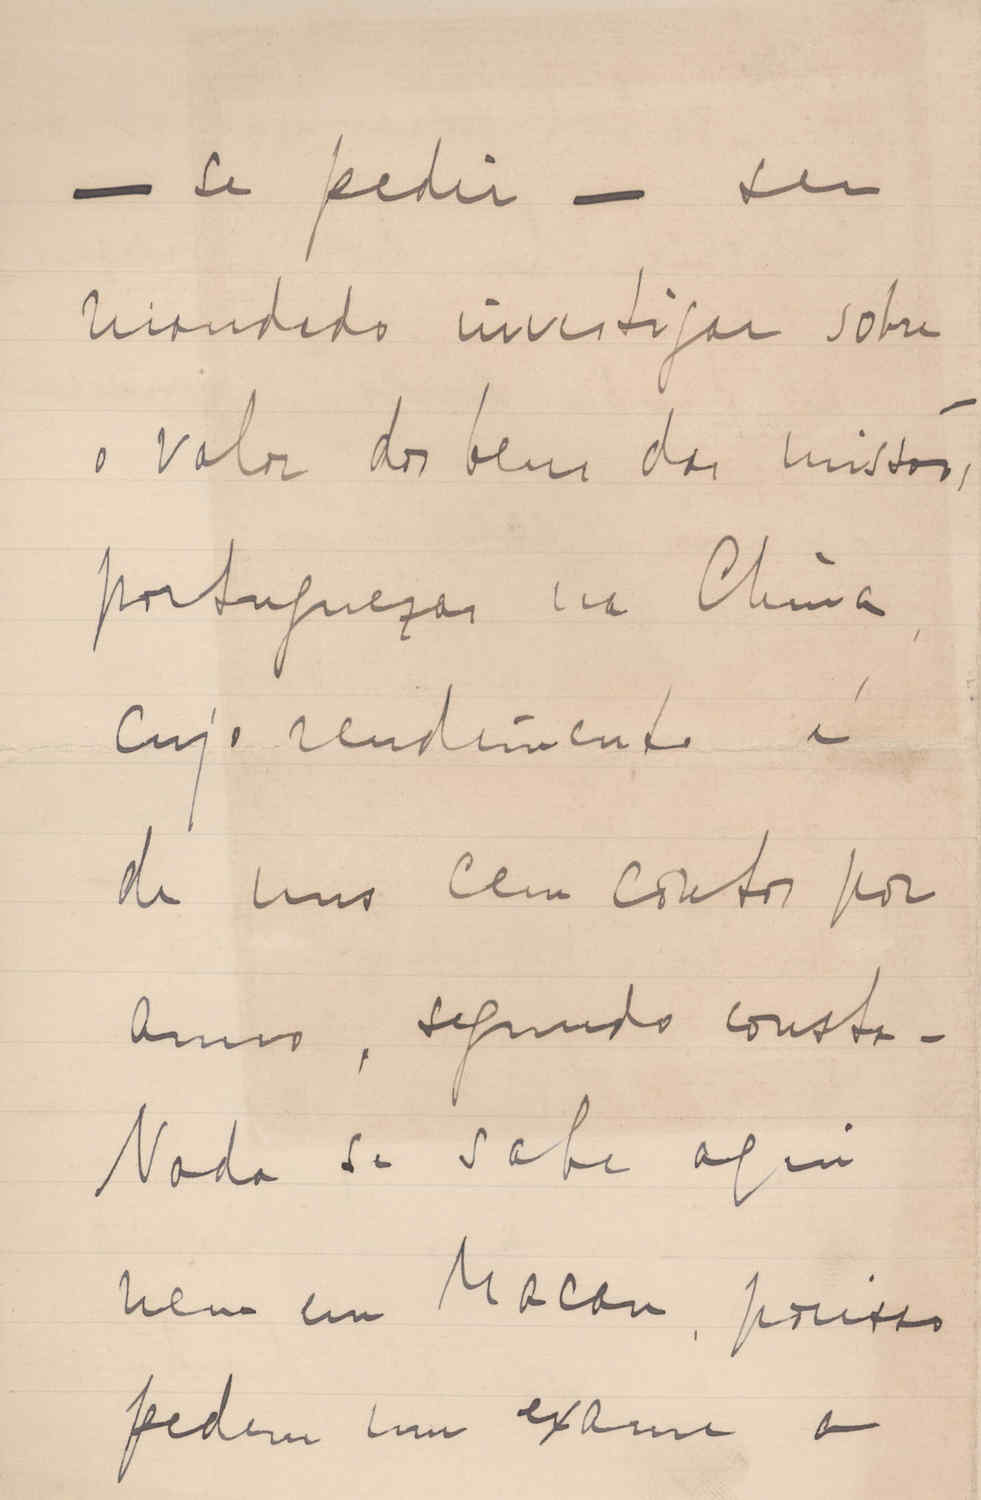 — se pedir — ser
mandado investigar sobre
o valor dos bens das missões
portuguezas na China,
cujo rendimento é
de uns cem contos por
anno, segundo consta -
Nada se sabe aqui
nem em Macau, porisso
pedem um exame a